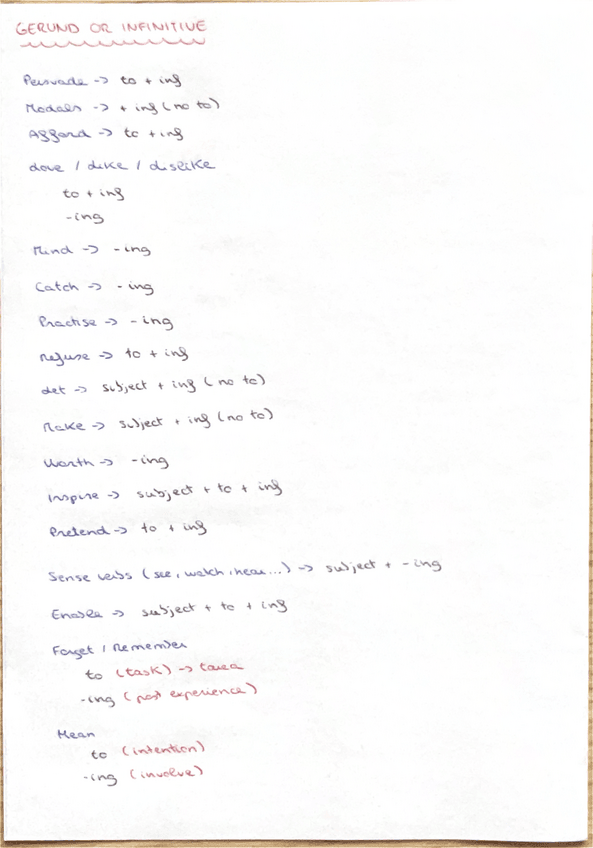 GERUND OR INFINITIVE
Persuade -> to + inf
Modals -> + inf (no to)
Afford -> to + inf
Love / Like / dislike
to + inf
-ing
Mind -> -ing
Catch -> -ing
Practise -> -ing
refuse -> to + inf
Let -> subject + inf (no to)
Make -> subject + inf (no to)
Worth -> -ing
Inspire -> subject + to + inf
Pretend -> to + inf
Sense verbs (see, watch, hear...) -> subject + -ing
Enable -> subject + to + inf
Forget / Remember
to (task) -> tarea
-ing (past experience)
Mean
to (intention)
-ing (involve)